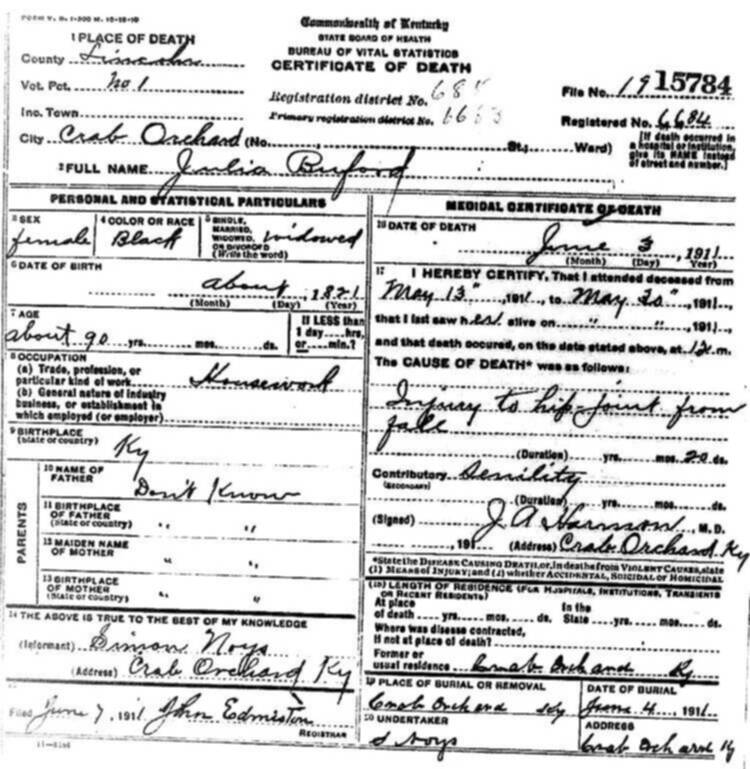 FORM V. S. 1-500 M. 10-18-10
Commonwealth of Kentucky
STATE BOARD OF HEALTH
BUREAU OF VITAL STATISTICS
CERTIFICATE OF DEATH
1 PLACE OF DEATH
County Lincoln
Vot. Pct. No 1
Inc. Town
City Crab Orchard (No. St.; Ward)
Registration district No. 685
Primary registration district No.
File No. 19 15784
Registered No. 6684
[If death occurred in a hospital or institution, give its NAME instead of street and number.]
2 FULL NAME Julia Buford
PERSONAL AND STATISTICAL PARTICULARS
3 SEX
female
4 COLOR OR RACE
Black
5 SINGLE, MARRIED, WIDOWED, OR DIVORCED (Write the word)
widowed
6 DATE OF BIRTH
about 1821
(Month) (Day) (Year)
7 AGE
about 90 yrs. mos. ds.
If LESS than 1 day hrs. or min.?
8 OCCUPATION
(a) Trade, profession, or particular kind of work Housework
(b) General nature of industry business, or establishment in which employed (or employer)
9 BIRTHPLACE
(State or country) Ky
PARENTS
10 NAME OF FATHER Don't Know
11 BIRTHPLACE OF FATHER (State or country) " "
12 MAIDEN NAME OF MOTHER " "
13 BIRTHPLACE OF MOTHER (State or country) " "
14 THE ABOVE IS TRUE TO THE BEST OF MY KNOWLEDGE
(Informant) Simon Noys
(Address) Crab Orchard Ky
Filed June 7, 1911 John Edmiston
REGISTRAR
MEDICAL CERTIFICATE OF DEATH
16 DATE OF DEATH
June 3 1911
(Month) (Day) (Year)
17 I HEREBY CERTIFY, That I attended deceased from
May 13", 1911, to May 20", 1911,
that I last saw her alive on " ", 1911,
and that death occured, on the date stated above, at 12 m.
The CAUSE OF DEATH* was as follows:
Injury to hip-joint from
fall
(Duration) yrs. mos. 20 ds.
Contributory Senility
(SECONDARY)
(Duration) yrs. mos. ds.
(Signed) J A Harmon, M.D.
, 191 (Address) Crab Orchard Ky
*State the DISEASE CAUSING DEATH, or, in deaths from VIOLENT CAUSES, state
(1) MEANS OF INJURY; and (2) whether ACCIDENTAL, SUICIDAL or HOMICIDAL
(18) LENGTH OF RESIDENCE (FOR HOSPITALS, INSTITUTIONS, TRANSIENTS OR RECENT RESIDENTS)
At place of death yrs. mos. ds. In the State yrs. mos. ds.
Where was disease contracted,
if not at place of death?
Former or
usual residence Crab Orchard Ky
19 PLACE OF BURIAL OR REMOVAL
Crab Orchard Ky
DATE OF BURIAL
June 4, 1911
20 UNDERTAKER
S Noys
ADDRESS
Crab Orchard Ky